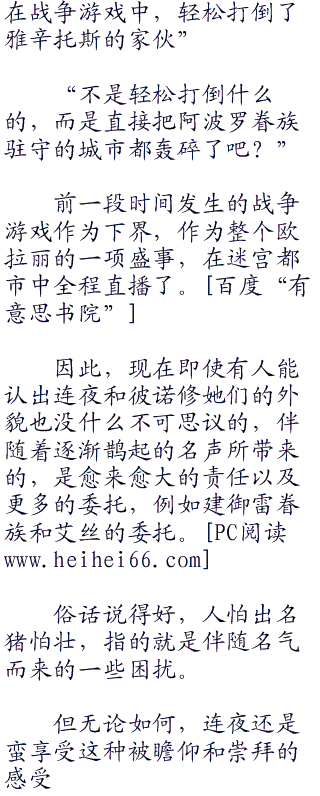 在战争游戏中，轻松打倒了
雅辛托斯的家伙”
“不是轻松打倒什么
的，而是直接把阿波罗眷族
驻守的城市都轰碎了吧？”
前一段时间发生的战争
游戏作为下界，作为整个欧
拉丽的一项盛事，在迷宫都
市中全程直播了。[百度“有
意思书院”]
因此，现在即使有人能
认出连夜和彼诺修她们的外
貌也没什么不可思议的，伴
随着逐渐鹊起的名声所带来
的，是愈来愈大的责任以及
更多的委托，例如建御雷眷
族和艾丝的委托。[PC阅读
www.heihei66.com]
俗话说得好，人怕出名
猪怕壮，指的就是伴随名气
而来的一些困扰。
但无论如何，连夜还是
蛮享受这种被瞻仰和崇拜的
感受